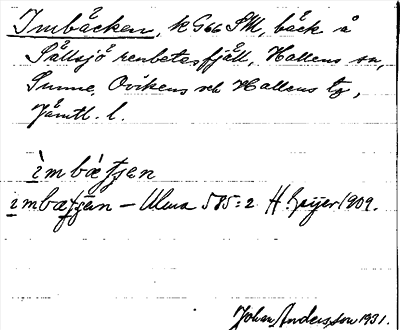 Imbäcken, k G66 SM, bäck å
Sållsjö renbetesfjäll, Hallens sn,
Sunne, Ovikens och Hallens tg,
Jämtl. l.
ìmbæ̀ʃʃen
imbæʃʃen – Ulma 585:2 H. Geijer 1909.
Johan Andersson 1931.